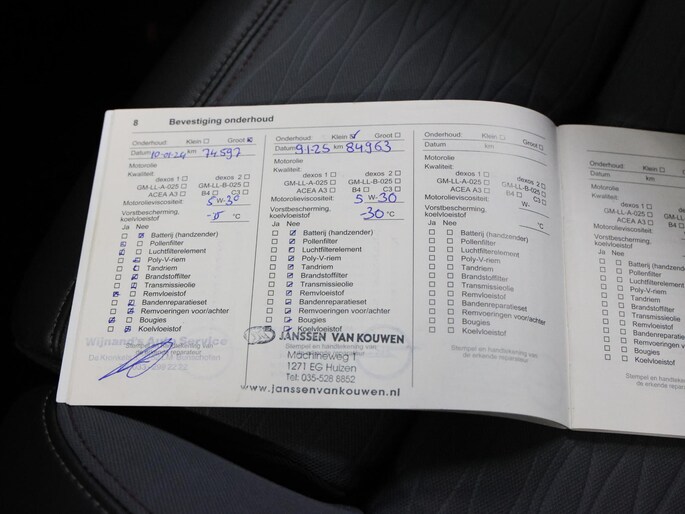 8 Bevestiging onderhoud
Onderhoud: Klein Groot
Datum 10-01-24 km 74597
Motorolie
Kwaliteit:
dexos 1 dexos 2
GM-LL-A-025 GM-LL-B-025
ACEA A3 B4 C3
Motorolieviscositeit: 5 W-30
Vorstbescherming,
koelvloeistof °C
Ja Nee
Batterij (handzender)
Pollenfilter
Luchtfilterelement
Poly-V-riem
Tandriem
Brandstoffilter
Transmissieolie
Remvloeistof
Bandenreparatieset
Remvoeringen voor/achter
Bougies
Koelvloeistof
Wijnand's Auto Service
Stempel en handtekening van
de erkende reparateur
Onderhoud: Klein Groot
Datum 9-1-25 km 84963
Motorolie
Kwaliteit:
dexos 1 dexos 2
GM-LL-A-025 GM-LL-B-025
ACEA A3 B4 C3
Motorolieviscositeit: 5 W-30
Vorstbescherming,
koelvloeistof -30 °C
Ja Nee
Batterij (handzender)
Pollenfilter
Luchtfilterelement
Poly-V-riem
Tandriem
Brandstoffilter
Transmissieolie
Remvloeistof
Bandenreparatieset
Remvoeringen voor/achter
Bougies
Koelvloeistof
JANSSEN VAN KOUWEN
Stempel en handtekening van
Machineweg 1
1271 EG Huizen
Tel: 035-528 8852
www.janssenvankouwen.nl
Onderhoud: Klein Groot
Datum km
Motorolie
Kwaliteit:
dexos 1 dexos 2
GM-LL-A-025 GM-LL-B-025
ACEA A3 B4 C3
Motorolieviscositeit: W-
Vorstbescherming,
koelvloeistof °C
Ja Nee
Batterij (handzender)
Pollenfilter
Luchtfilterelement
Poly-V-riem
Tandriem
Brandstoffilter
Transmissieolie
Remvloeistof
Bandenreparatieset
Remvoeringen voor/achter
Bougies
Koelvloeistof
Stempel en handtekening van
de erkende reparateur
Onderhoud: Klein
Datum km
Motorolie
Kwaliteit:
dexos 1
GM-LL-A-025
ACEA A3
Motorolieviscositeit:
Vorstbescherming,
koelvloeistof
Ja Nee
Batterij (handzender)
Pollenfilter
Luchtfilterelement
Poly-V-riem
Tandriem
Brandstoffilter
Transmissieolie
Remvloeistof
Bandenreparatieset
Remvoeringen voor/achter
Bougies
Koelvloeistof
Stempel en handtekening van
de erkende reparateur